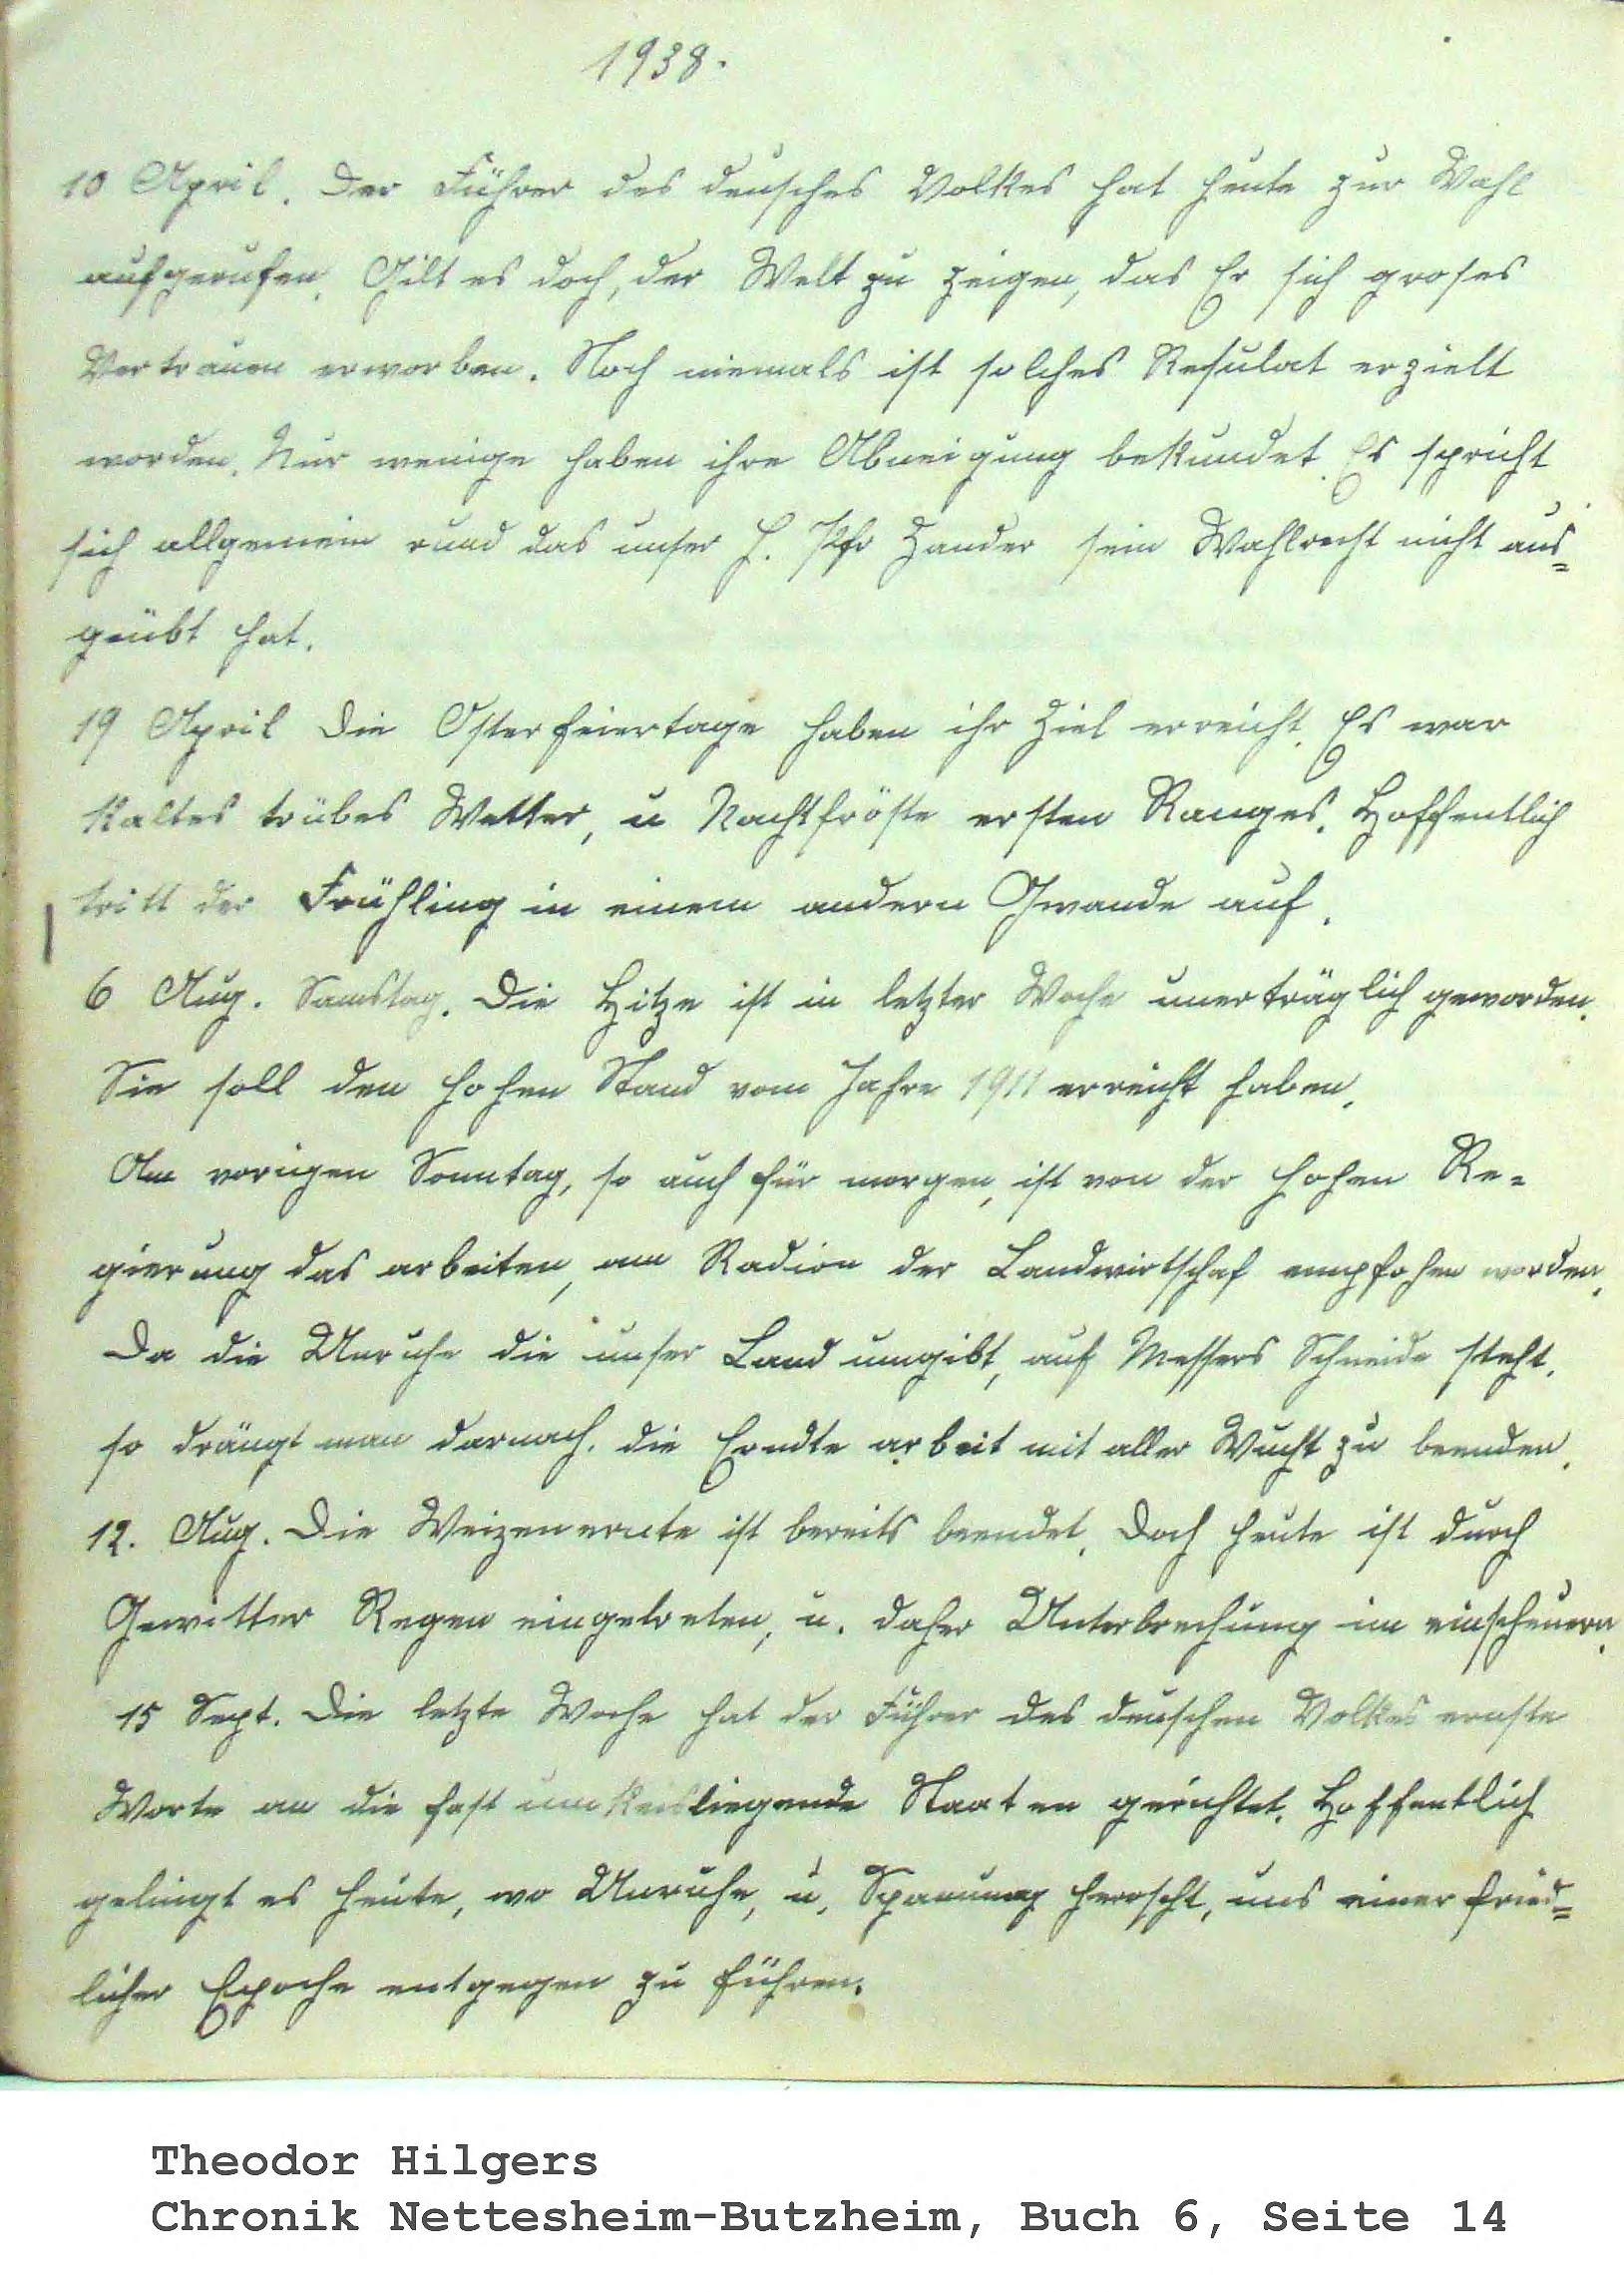 1938.
10 April. Der Führer des deusches Volkes hat heute zur Wahl
aufgerufen. Gilt es doch, der Welt zu zeigen, das Er sich groses
Vertrauen erworben. Noch niemals ist solches Resulat erzielt
worden. Nur wenige haben ihre Abneigung bekundet. Es spricht
sich allgemein rund das unser H. Pfr Zander sein Wahlrecht nicht aus=
geübt hat.
19 April Die Osterfeiertage haben ihr Ziel erreicht. Es war
kaltes trübes Wetter, u Nachtfröste ersten Ranges. Hoffentlich
tritt der Frühling in einem andern Gwande auf.
6 Aug. Samstag. Die Hitze ist in letzter Woche unerträglich geworden.
Sie soll den hohen Stand vom Jahre 1911 erreicht haben.
Am vorigen Sonntag, so auch für morgen, ist von der hohen Re=
gierung das arbeiten, am Radion der Landwirtschaf empfohen worden.
Da die Unruhe die unser Land umgibt, auf Messers Schneide steht.
so drängt man darnach. die Erndte arbeit mit aller Wucht zu beenden.
12. Aug. Die Weizenernte ist bereits beendet. Doch heute ist durch
Gewitter Regen eingetreten, u. daher Unterbrechung im einscheuern.
15 Sept. Die letzte Woche hat der Führer des deuschen Volkes ernste
Worte an die fast umkeisliegende Staaten gerichtet. Hoffentlich
gelingt es heute, wo Unruhe, u. Spannung herrscht, uns einer fried=
licher Epoche entgegen zu führen.
Theodor Hilgers
Chronik Nettesheim-Butzheim, Buch 6, Seite 14